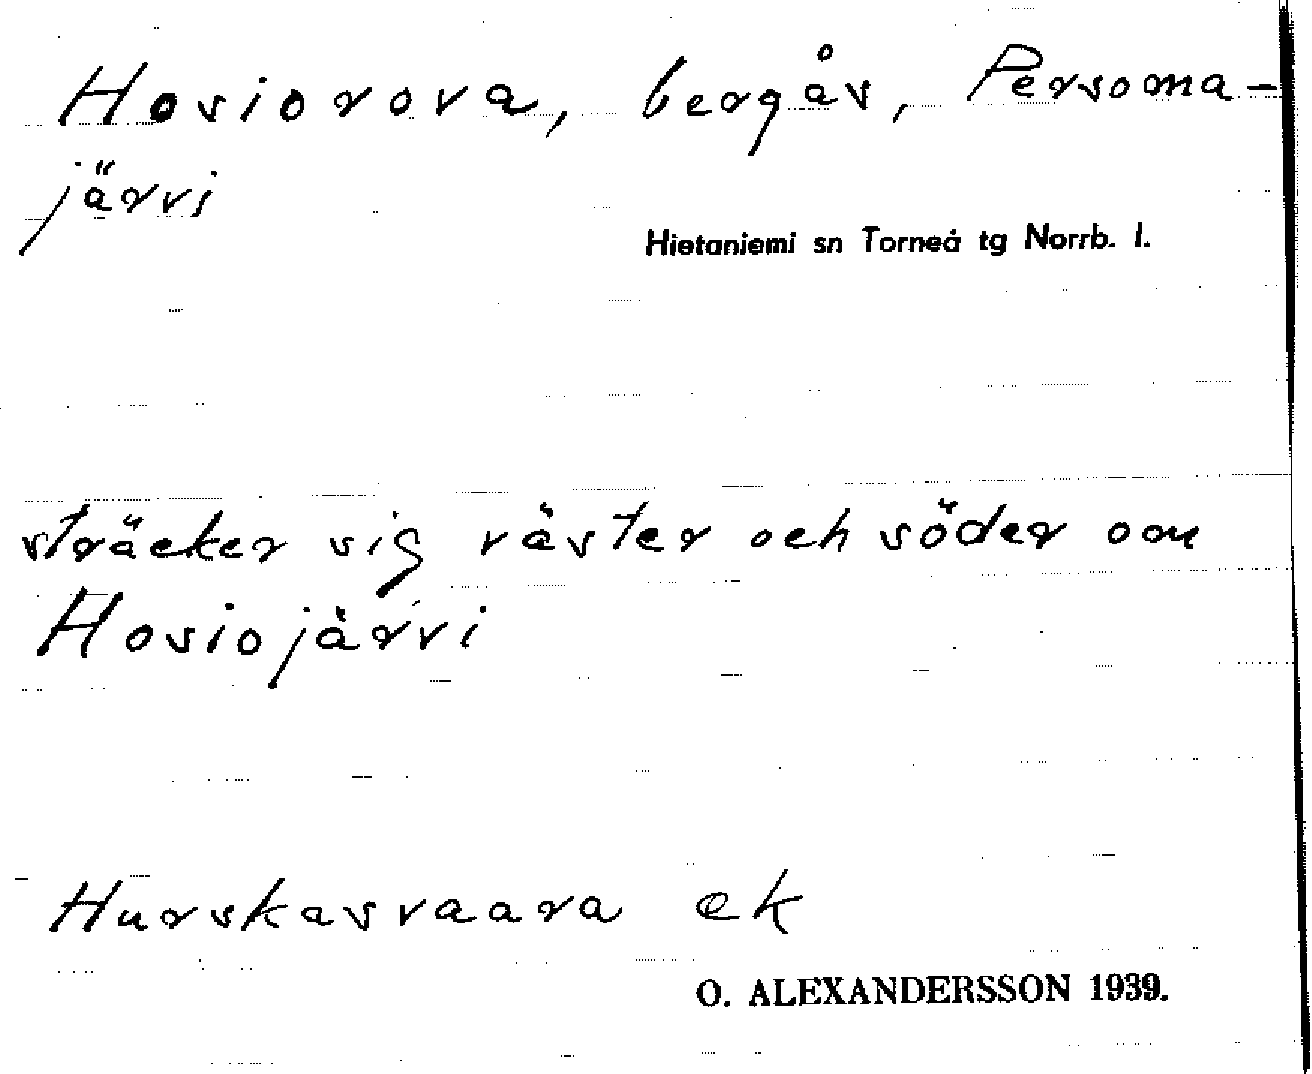 Hosiorova, bergås, Persoma-
järvi
Hietaniemi sn Torneå tg Norrb. l.
sträcker sig väster och söder om
Hosiojärvi
Hurskasvaara ek
O. ALEXANDERSSON 1939.